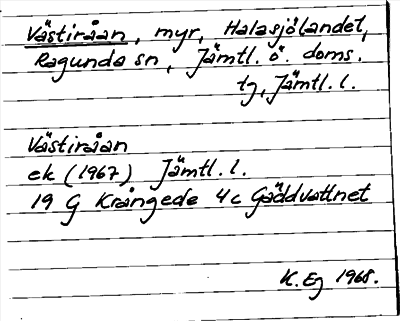 Västiråan, myr, Halasjölandet,
Ragunda sn, Jämtl. ö. doms.
tg, Jämtl. l.
Västiråan
ek (1967) Jämtl. l.
19 G Krångede 4c Gäddvattnet
K. Eg 1968.